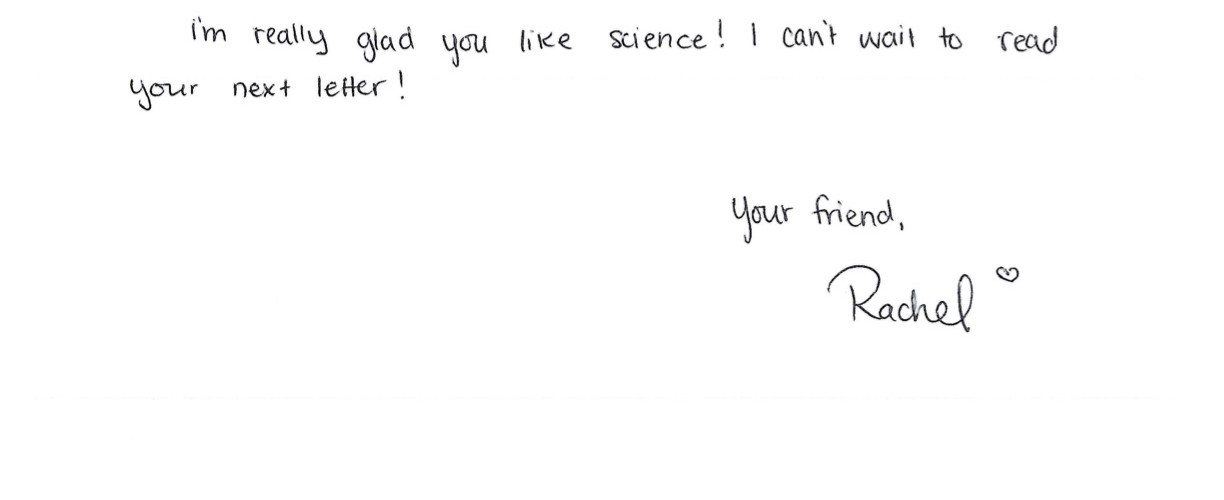 i'm really glad you like science! I can't wait to read
your next letter!
Your friend,
Rachel ♡